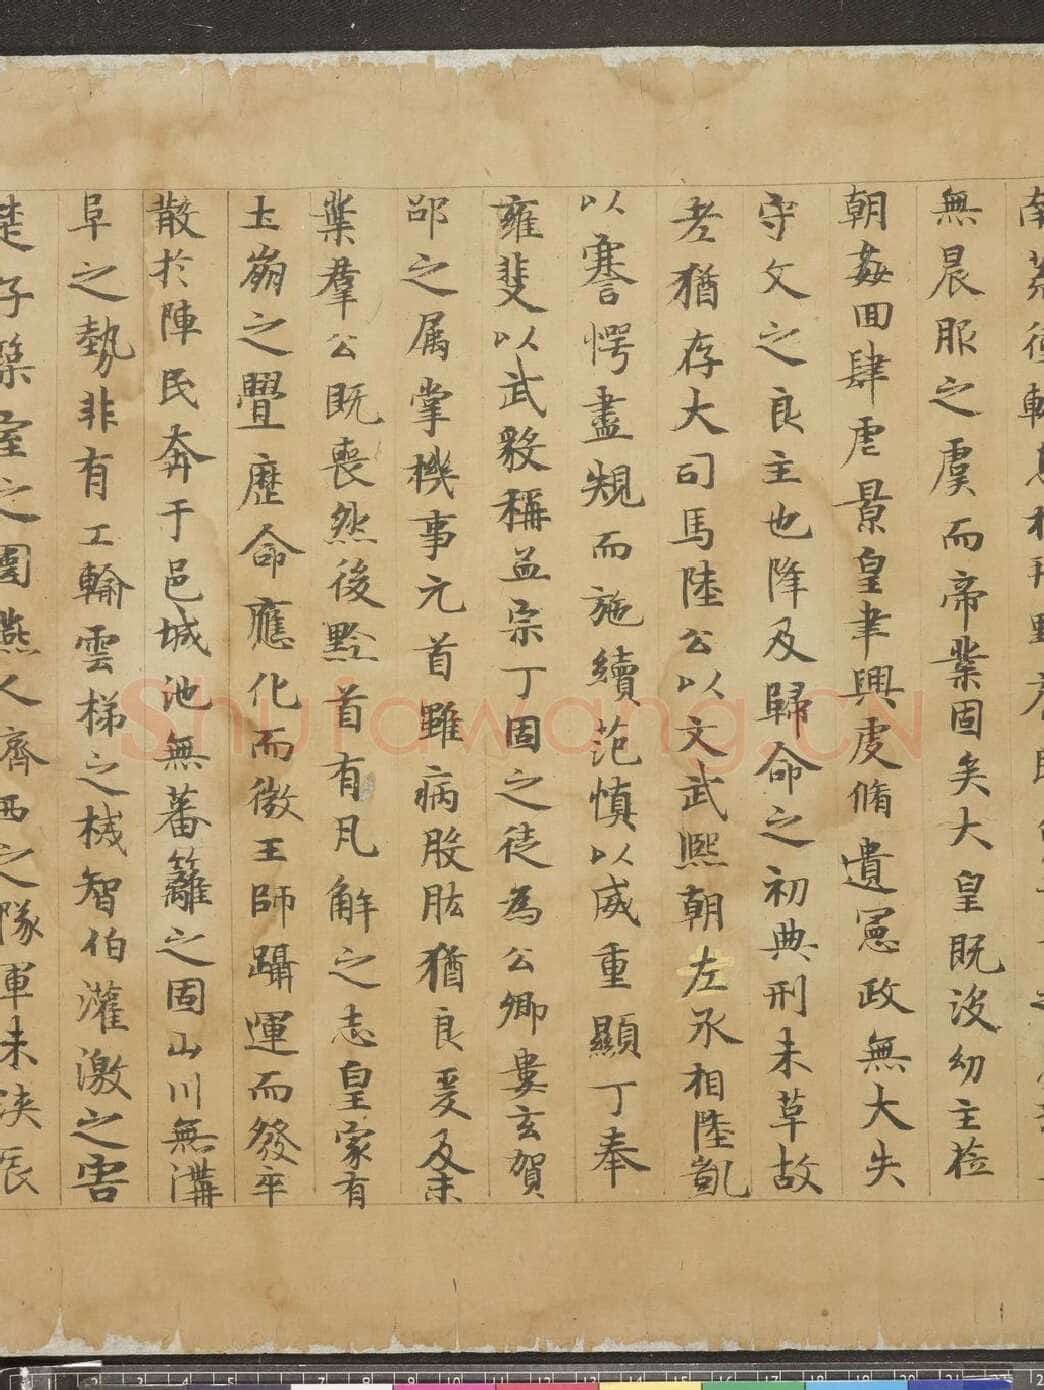 無晨服之虞而帝業固矣大皇既没幼主莅
朝姦回肆虐景皇聿興虔脩遺憲政無大失
守文之良主也降及歸命之初典刑未草故
老猶存大司馬陸公以文武熙朝左丞相陸凱
以謇愕盡規而施績范慎以威重顯丁奉
雍斐以武毅稱孟宗丁固之徒為公卿婁玄賀
邵之属掌機事元首雖病股肱猶良爰及末
葉羣公既喪然後黔首有瓦解之志皇家有
土崩之舋歷命應化而微王師躡運而發卒
散於陣民奔于邑城池無蕃籬之固山川無溝
阜之勢非有工輸雲梯之械智伯灌激之害
楚子築室之圍燕人齊西之隊軍未浹辰
Shufawang.CN